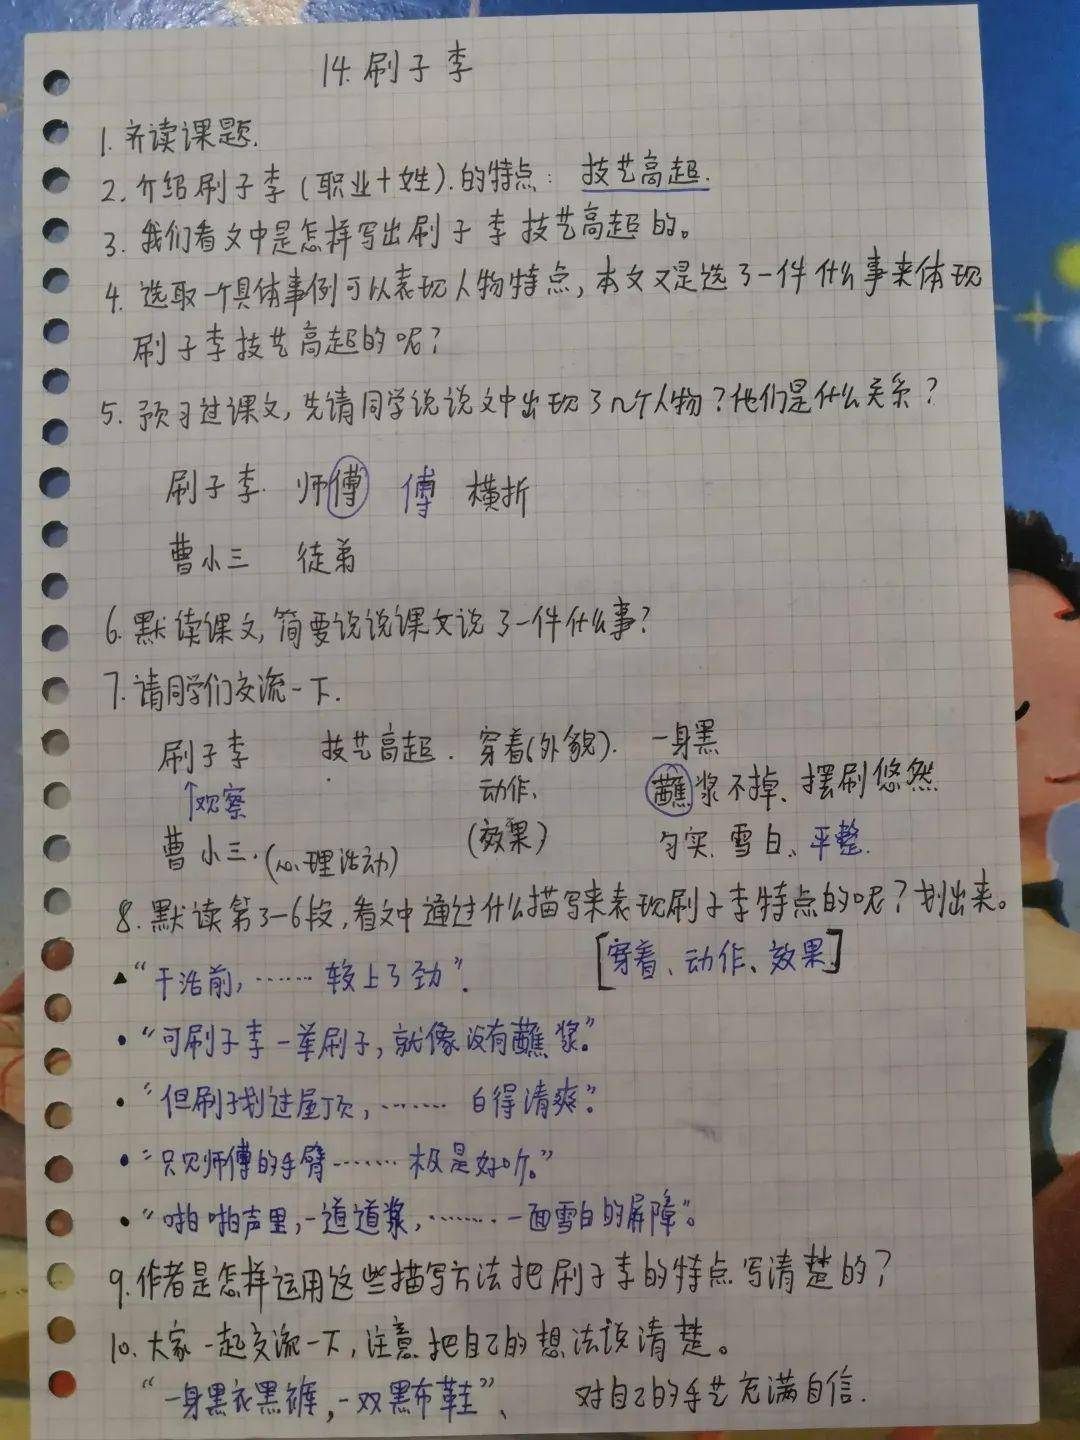 14.刷子李
1.齐读课题.
2.介绍刷子李(职业+姓).的特点:技艺高超.
3.我们看文中是怎样写出刷子李技艺高超的。
4.选取一个具体事例可以表现人物特点,本文又是选了一件什么事来体现
刷子李技艺高超的呢?
5.预习过课文,先请同学说说文中出现了几个人物?他们是什么关系?
刷子李. 师傅 傅 横折
曹小三 徒弟
6.默读课文,简要说说课文说了一件什么事?
7.请同学们交流一下.
刷子李 技艺高超. 穿着(外貌). 一身黑
↑观察 动作, 蘸浆不掉、摆刷悠然
曹小三.(心理活动) (效果) 匀实.雪白、平整.
8.默读第3-6段,看文中通过什么描写来表现刷子李特点的呢?划出来。
▲“干活前,……较上了劲”. [穿着、动作、效果.]
•“可刷子李一举刷子,就像没有蘸浆。”
•“但刷子划过屋顶,…… 白得清爽”。
•“只见师傅的手臂……极是好听。”
•“啪啪声里,一道道浆,……一面雪白的屏障”。
9.作者是怎样运用这些描写方法把刷子李的特点写清楚的?
10.大家一起交流一下,注意把自己的想法说清楚。
“一身黑衣黑裤,一双黑布鞋”、 对自己的手艺充满自信.